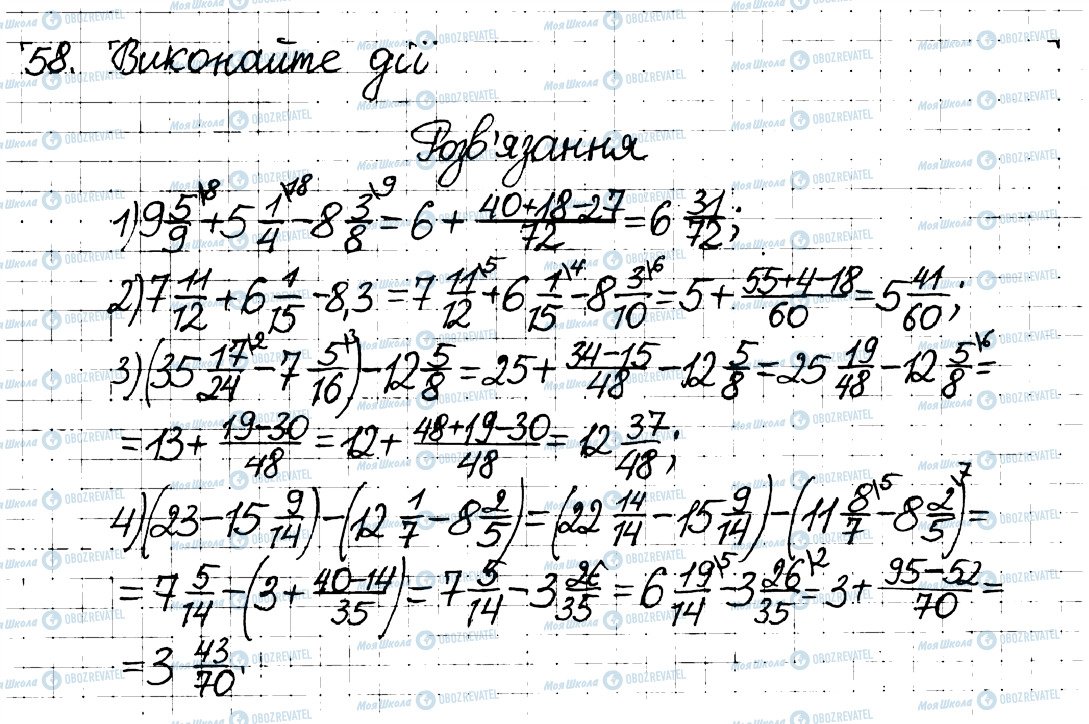 58. Виконайте дії
Розв'язання
1) 9 5/9\8 + 5 1/4\18 − 8 3/8\9 = 6 + (40+18−27)/72 = 6 31/72;
2) 7 11/12 + 6 1/15 − 8,3 = 7 11/12\5 + 6 1/15\4 − 8 3/10\6 = 5 + (55+4−18)/60 = 5 41/60;
3) (35 17/24\2 − 7 5/16\3) − 12 5/8 = 25 + (34−15)/48 − 12 5/8 = 25 19/48 − 12 5/8\6 =
= 13 + (19−30)/48 = 12 + (48+19−30)/48 = 12 37/48;
4) (23 − 15 9/14) − (12 1/7 − 8 2/5) = (22 14/14 − 15 9/14) − (11 8/7\5 − 8 2/5\7) =
= 7 5/14 − (3 + (40−14)/35) = 7 5/14 − 3 26/35 = 6 19/14\5 − 3 26/35\2 = 3 + (95−52)/70 =
= 3 43/70.